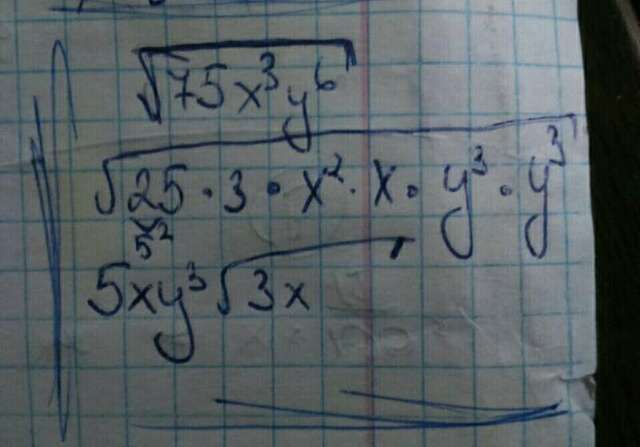 √75x³y⁶
√25·3·x²·x·y³·y³
5²
5xy³√3x